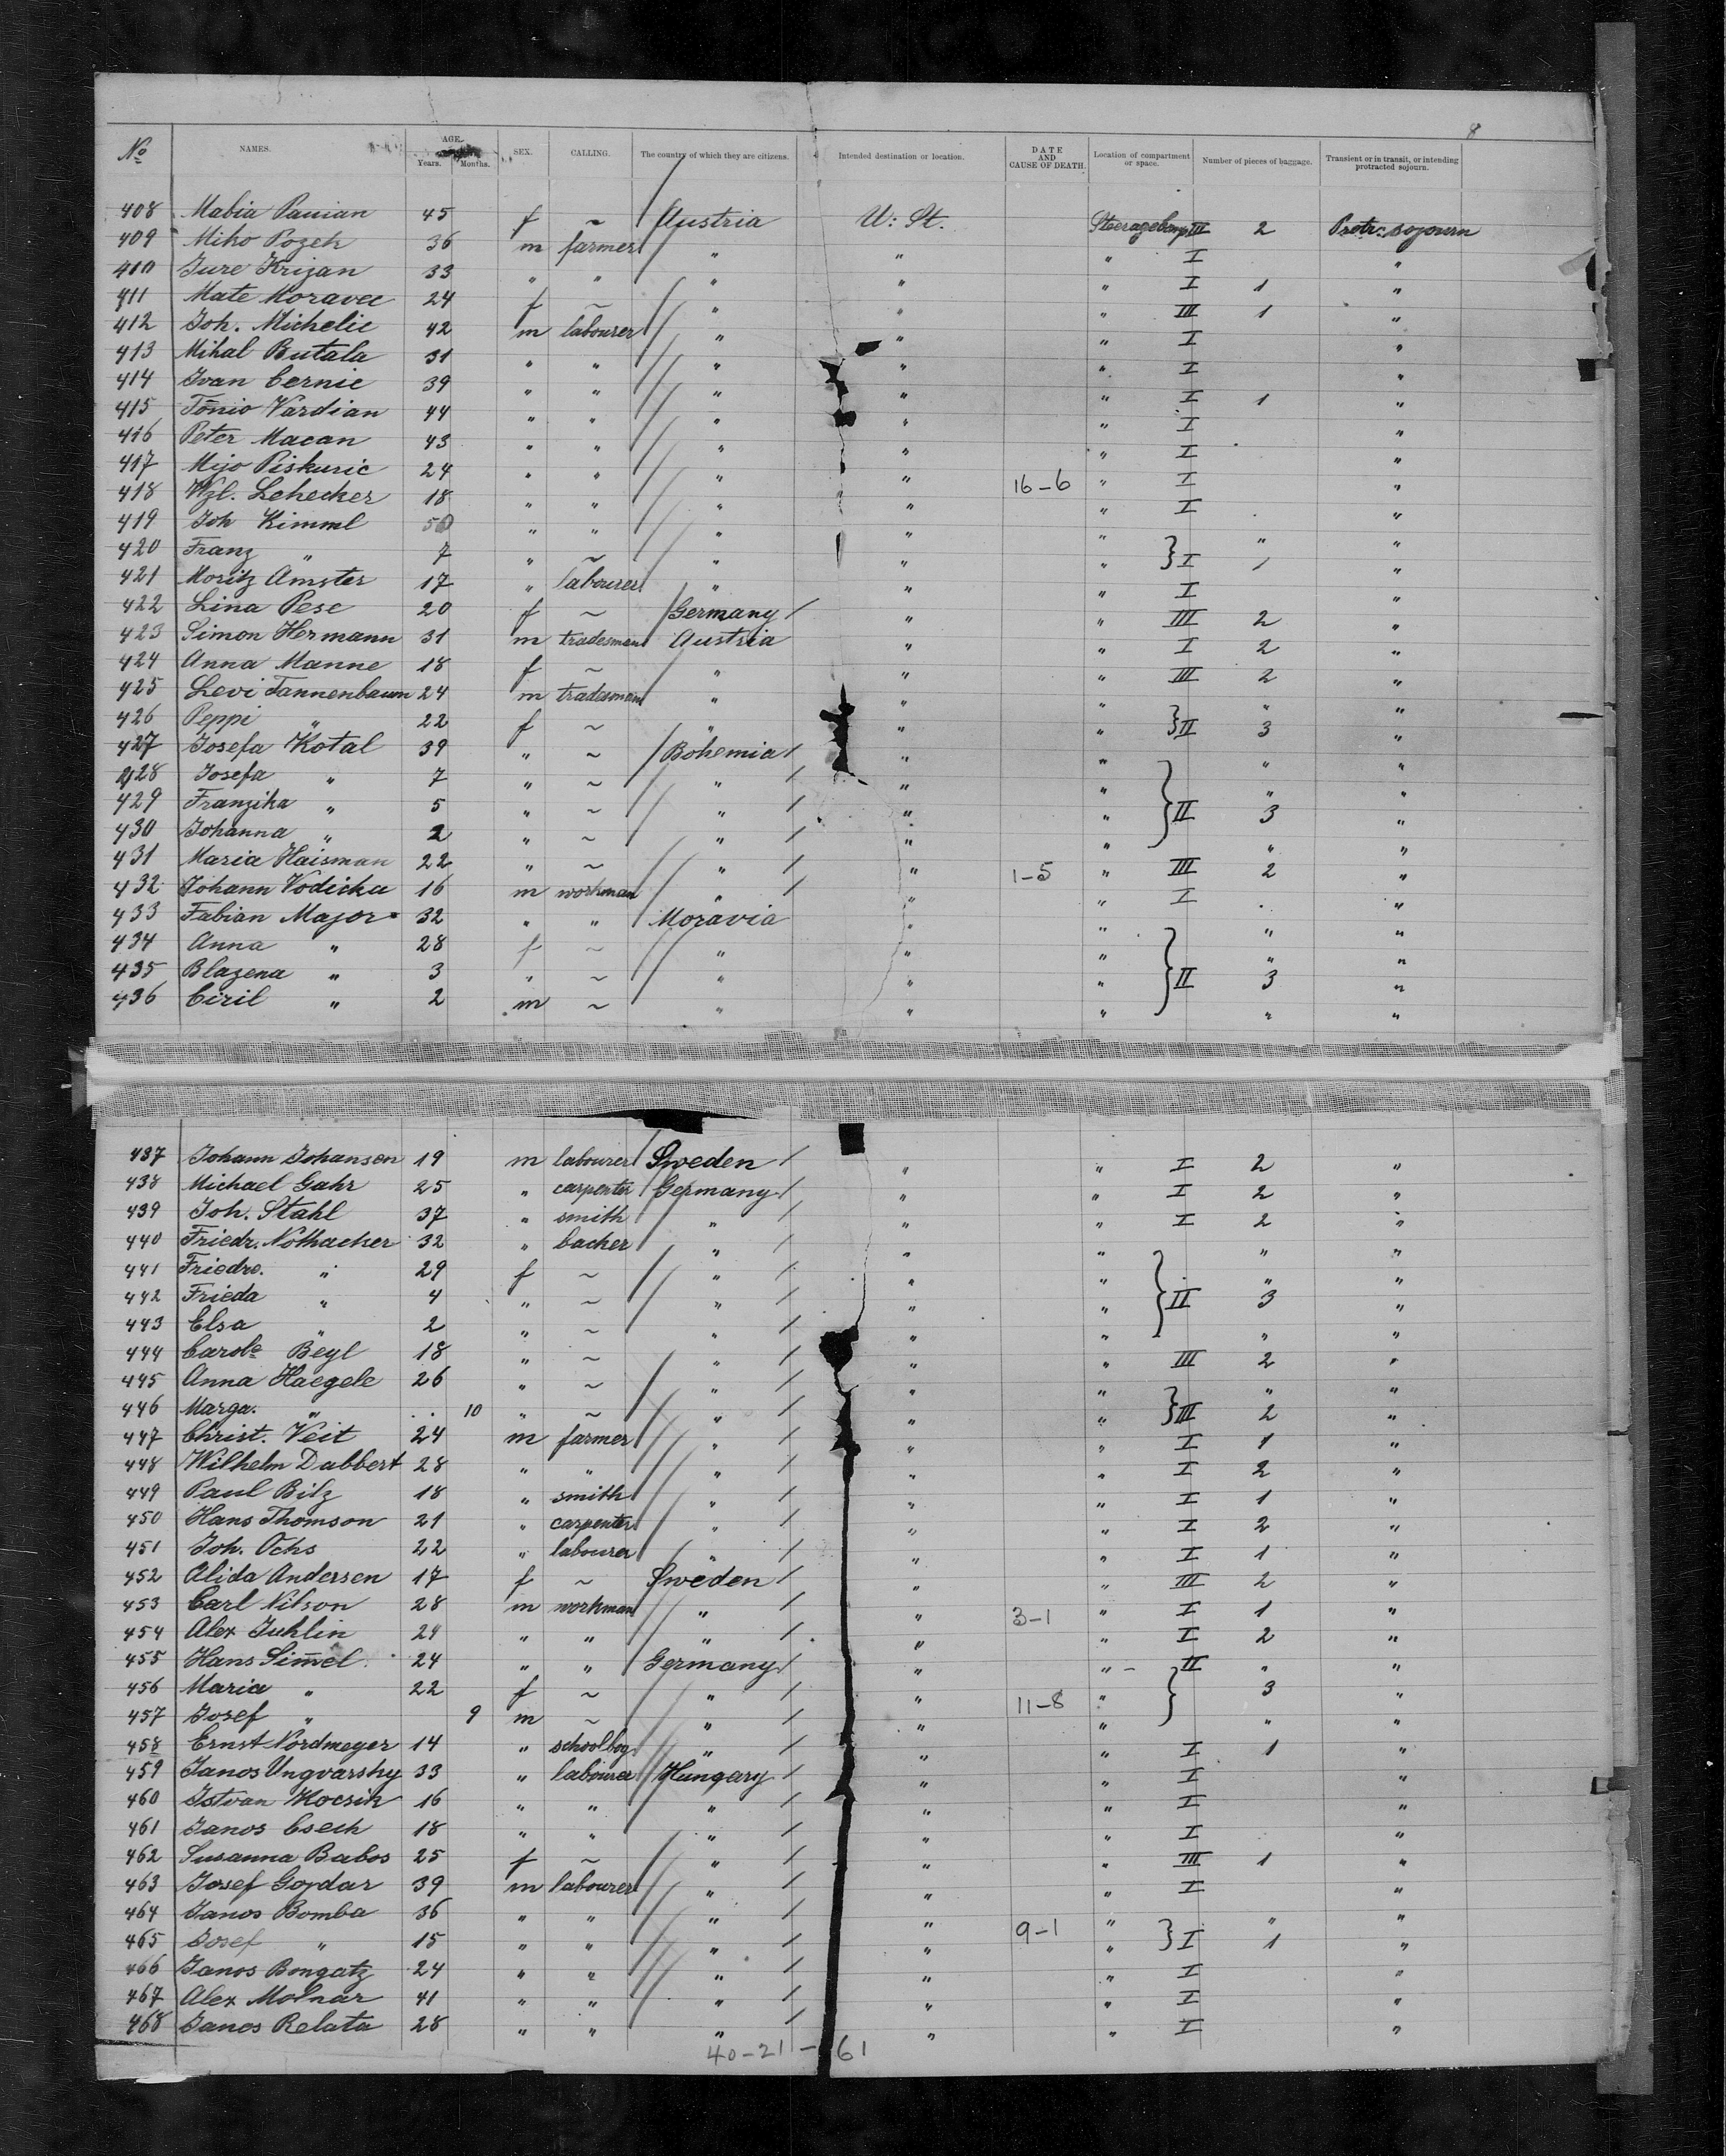 8
No NAMES. AGE. Years. Months. SEX. CALLING. The country of which they are citizens. Intended destination or location. DATE AND CAUSE OF DEATH. Location of compartment or space. Number of pieces of baggage. Transient or in transit, or intending protracted sojourn.
408 Mabia Paunian 45 f ~ Austria U: St. III 2 Protr: sojourn
409 Miko Pozek 36 m farmer " " " I "
410 Jure Krizan 33 " " " " " I 1 "
411 Mate Moravec 24 f ~ " " " III 1 "
412 Joh. Michelic 42 m labourer " " " I "
413 Mihal Butala 31 " " " " " I "
414 Ivan Cernic 39 " " " " " I 1 "
415 Tonio Vardian 44 " " " " " I "
416 Peter Macan 43 " " " " " I "
417 Mijo Piskuric 24 " " " " 16-6 " I "
418 Wzl. Lehecker 18 " " " " " I "
419 Joh Kimml 50 " " " " " " "
420 Franz " 7 " ~ " " " } I 1 "
421 Moritz Amster 17 " labourer " " " I "
422 Lina Pese 20 f ~ Germany " " III 2 "
423 Simon Hermann 31 m tradesman Austria " " I 2 "
424 Anna Manne 18 f ~ " " " III 2 "
425 Levi Tannenbaum 24 m tradesman " " " " "
426 Peppi " 22 f ~ " " " } II 3 "
427 Josefa Kotal 39 " ~ Bohemia " " " "
428 Josefa " 7 " ~ " " " " "
429 Franzika " 5 " ~ " " " } II 3 "
430 Johanna " 2 " ~ " " " " "
431 Maria Haisman 22 " ~ " " 1-5 " III 2 "
432 Johann Vodicka 16 m workman " " " I "
433 Fabian Major 32 " " Moravia " " " "
434 Anna " 28 f ~ " " " " "
435 Blazena " 3 " ~ " " " } II 3 "
436 Ciril " 2 m ~ " " " " "
437 Johann Johansen 19 m labourer Sweden " " I 2 "
438 Michael Gahr 25 " carpenter Germany " " I 2 "
439 Joh. Stahl 37 " smith " " " I 2 "
440 Friedr. Nothacker 32 " backer " " " " "
441 Friedre. " 29 f ~ " " " " "
442 Frieda " 4 " ~ " " " } II 3 "
443 Elsa " 2 " ~ " " " " "
444 Carole Beyl 18 " ~ " " " III 2 "
445 Anna Haegele 26 " ~ " " " " "
446 Marga. " 10 " ~ " " " } III 2 "
447 Christ. Veit 24 m farmer " " " I 1 "
448 Wilhelm Dabbert 28 " " " " " I 2 "
449 Paul Bilz 18 " smith " " " I 1 "
450 Hans Thomson 21 " carpenter " " " I 2 "
451 Joh. Ochs 22 " labourer " " " I 1 "
452 Alida Andersen 17 f ~ Sweden " " III 2 "
453 Carl Nilson 28 m workman " " 3-1 " I 1 "
454 Alex Juhlin 24 " " " " " I 2 "
455 Hans Simel 24 " " Germany " " II " "
456 Maria " 22 f ~ " " 11-8 " } 3 "
457 Josef " 9 m ~ " " " " "
458 Ernst Nordmeyer 14 " schoolboy " " " I 1 "
459 Janos Ungvarsky 33 " labourer Hungary " " I "
460 Istvan Kocsik 16 " " " " " I "
461 Janos Csech 18 " " " " " I "
462 Susanna Babos 25 f ~ " " " III 1 "
463 Josef Gojdar 39 m labourer " " " I "
464 Janos Bomba 36 " " " " 9-1 " " "
465 Josef " 15 " " " " " } I 1 "
466 Janos Bongatz 24 " " " " " I "
467 Alex Molnar 41 " " " " " I "
468 Janos Relata 28 " " " " " I "
40-21-61